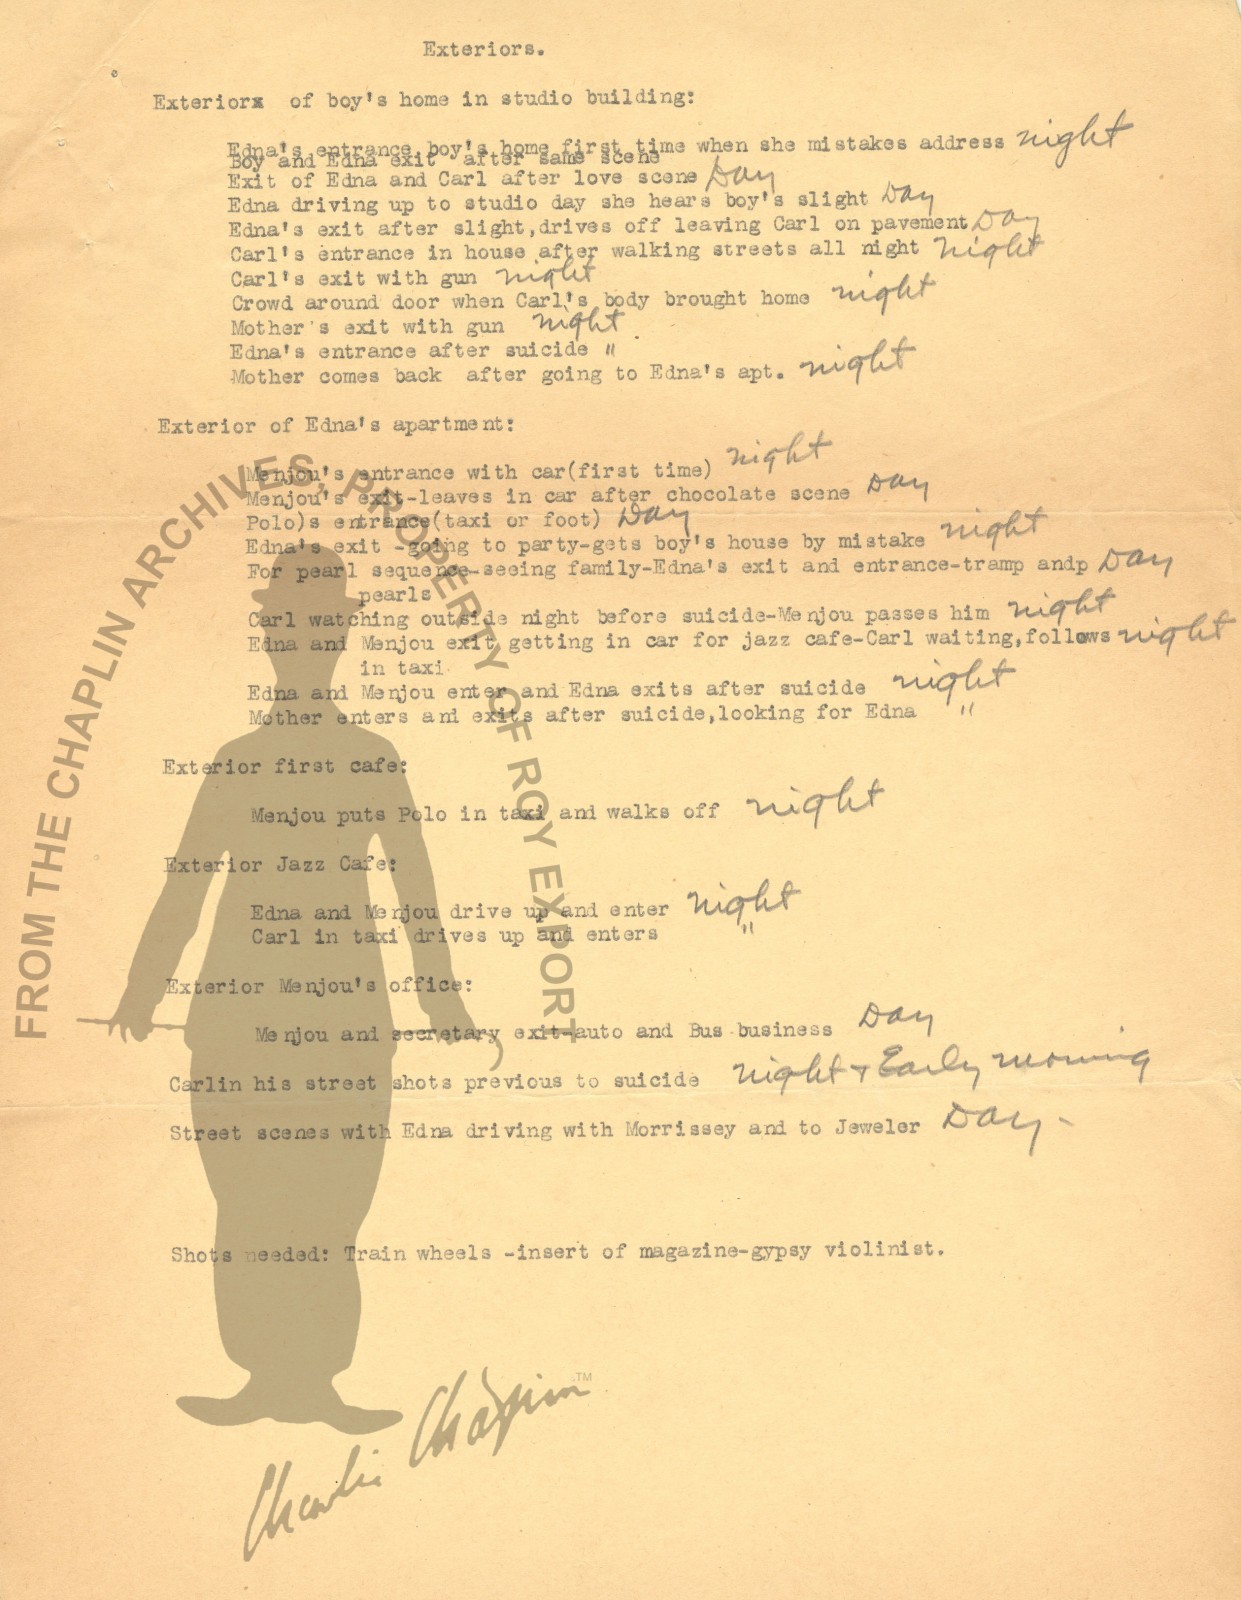 Exteriors.
Exteriorx of boy's home in studio building:
Edna's entrance boy's home first time when she mistakes address night
Boy and Edna exit after same scene
Exit of Edna and Carl after love scene Day
Edna driving up to studio day she hears boy's slight Day
Edna's exit after slight,drives off leaving Carl on pavement Day
Carl's entrance in house after walking streets all night night
Carl's exit with gun night
Crowd around door when Carl's body brought home night
Mother's exit with gun night
Edna's entrance after suicide "
Mother comes back after going to Edna's apt. night
Exterior of Edna's apartment:
Menjou's entrance with car(first time) night
Menjou's exit-leaves in car after chocolate scene Day
Polo)s entrance(taxi or foot) Day
Edna's exit -going to party-gets boy's house by mistake night
For pearl sequence-seeing family-Edna's exit and entrance-tramp andp Day
pearls
Carl watching outside night before suicide-Menjou passes him night
Edna and Menjou exit,getting in car for jazz cafe-Carl waiting,follows night
in taxi
Edna and Menjou enter and Edna exits after suicide night
Mother enters and exits after suicide,looking for Edna "
Exterior first cafe:
Menjou puts Polo in taxi and walks off night
Exterior Jazz Cafe:
Edna and Menjou drive up and enter night
Carl in taxi drives up and enters "
Exterior Menjou's office:
Menjou and secretary exit-auto and Bus business Day
Carlin his street shots previous to suicide night + Early morning
Street scenes with Edna driving with Morrissey and to Jeweler Day-
Shots needed: Train wheels -insert of magazine-gypsy violinist.
FROM THE CHAPLIN ARCHIVES, PROPERTY OF ROY EXPORT
Charlie Chaplin TM